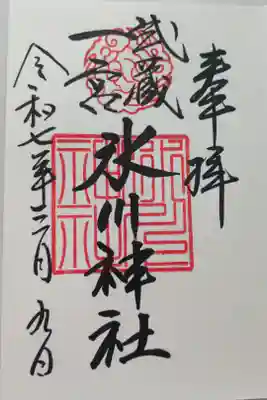 奉拝
武蔵
一宮
氷川神社
令和七年十二月九日